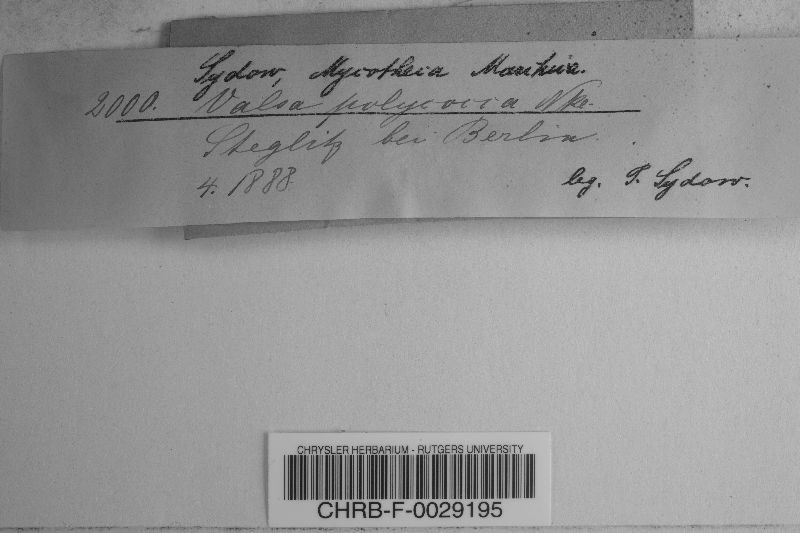 Sydow, Mycotheca Marchica.
2000. Valsa polycocca Nke.
Steglitz bei Berlin.
4. 1888 leg. P. Sydow.
CHRYSLER HERBARIUM - RUTGERS UNIVERSITY
CHRB-F-0029195